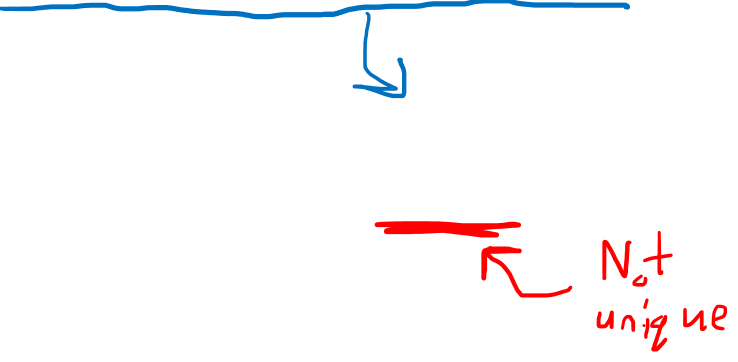 Not
unique